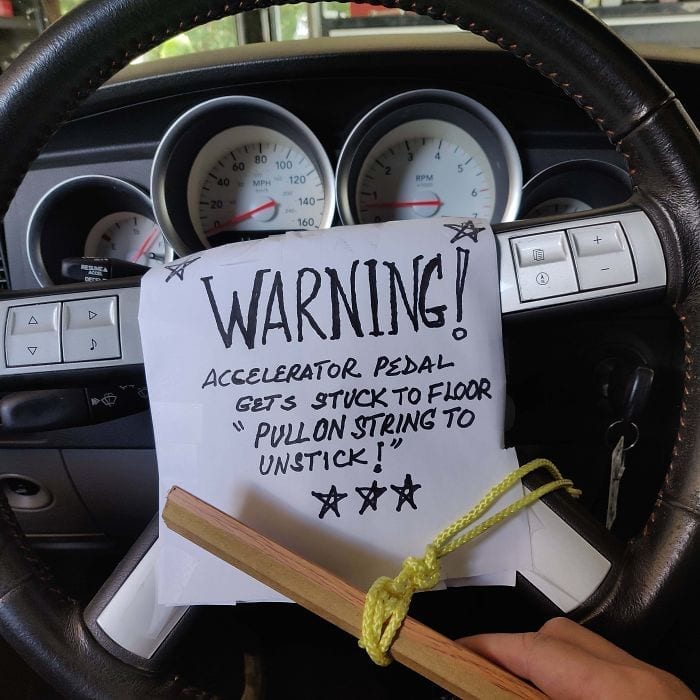 20 40 60 80 100 120 140 160
MPH
1 2 3 4 5 6 7
RPM
RESUME
ACCEL
WARNING!
ACCELERATOR PEDAL
GETS STUCK TO FLOOR
“PULL ON STRING TO
UNSTICK!”